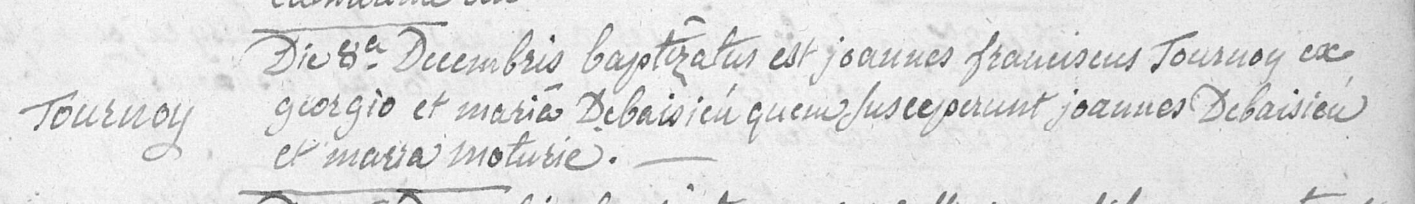 Die 8a. Decembris baptizatus est joannes franciscus Tournoy ex
Tournoy
georgio et mariâ Debaisieú quem susceperunt joannes Debaisieú
et maria moturie.